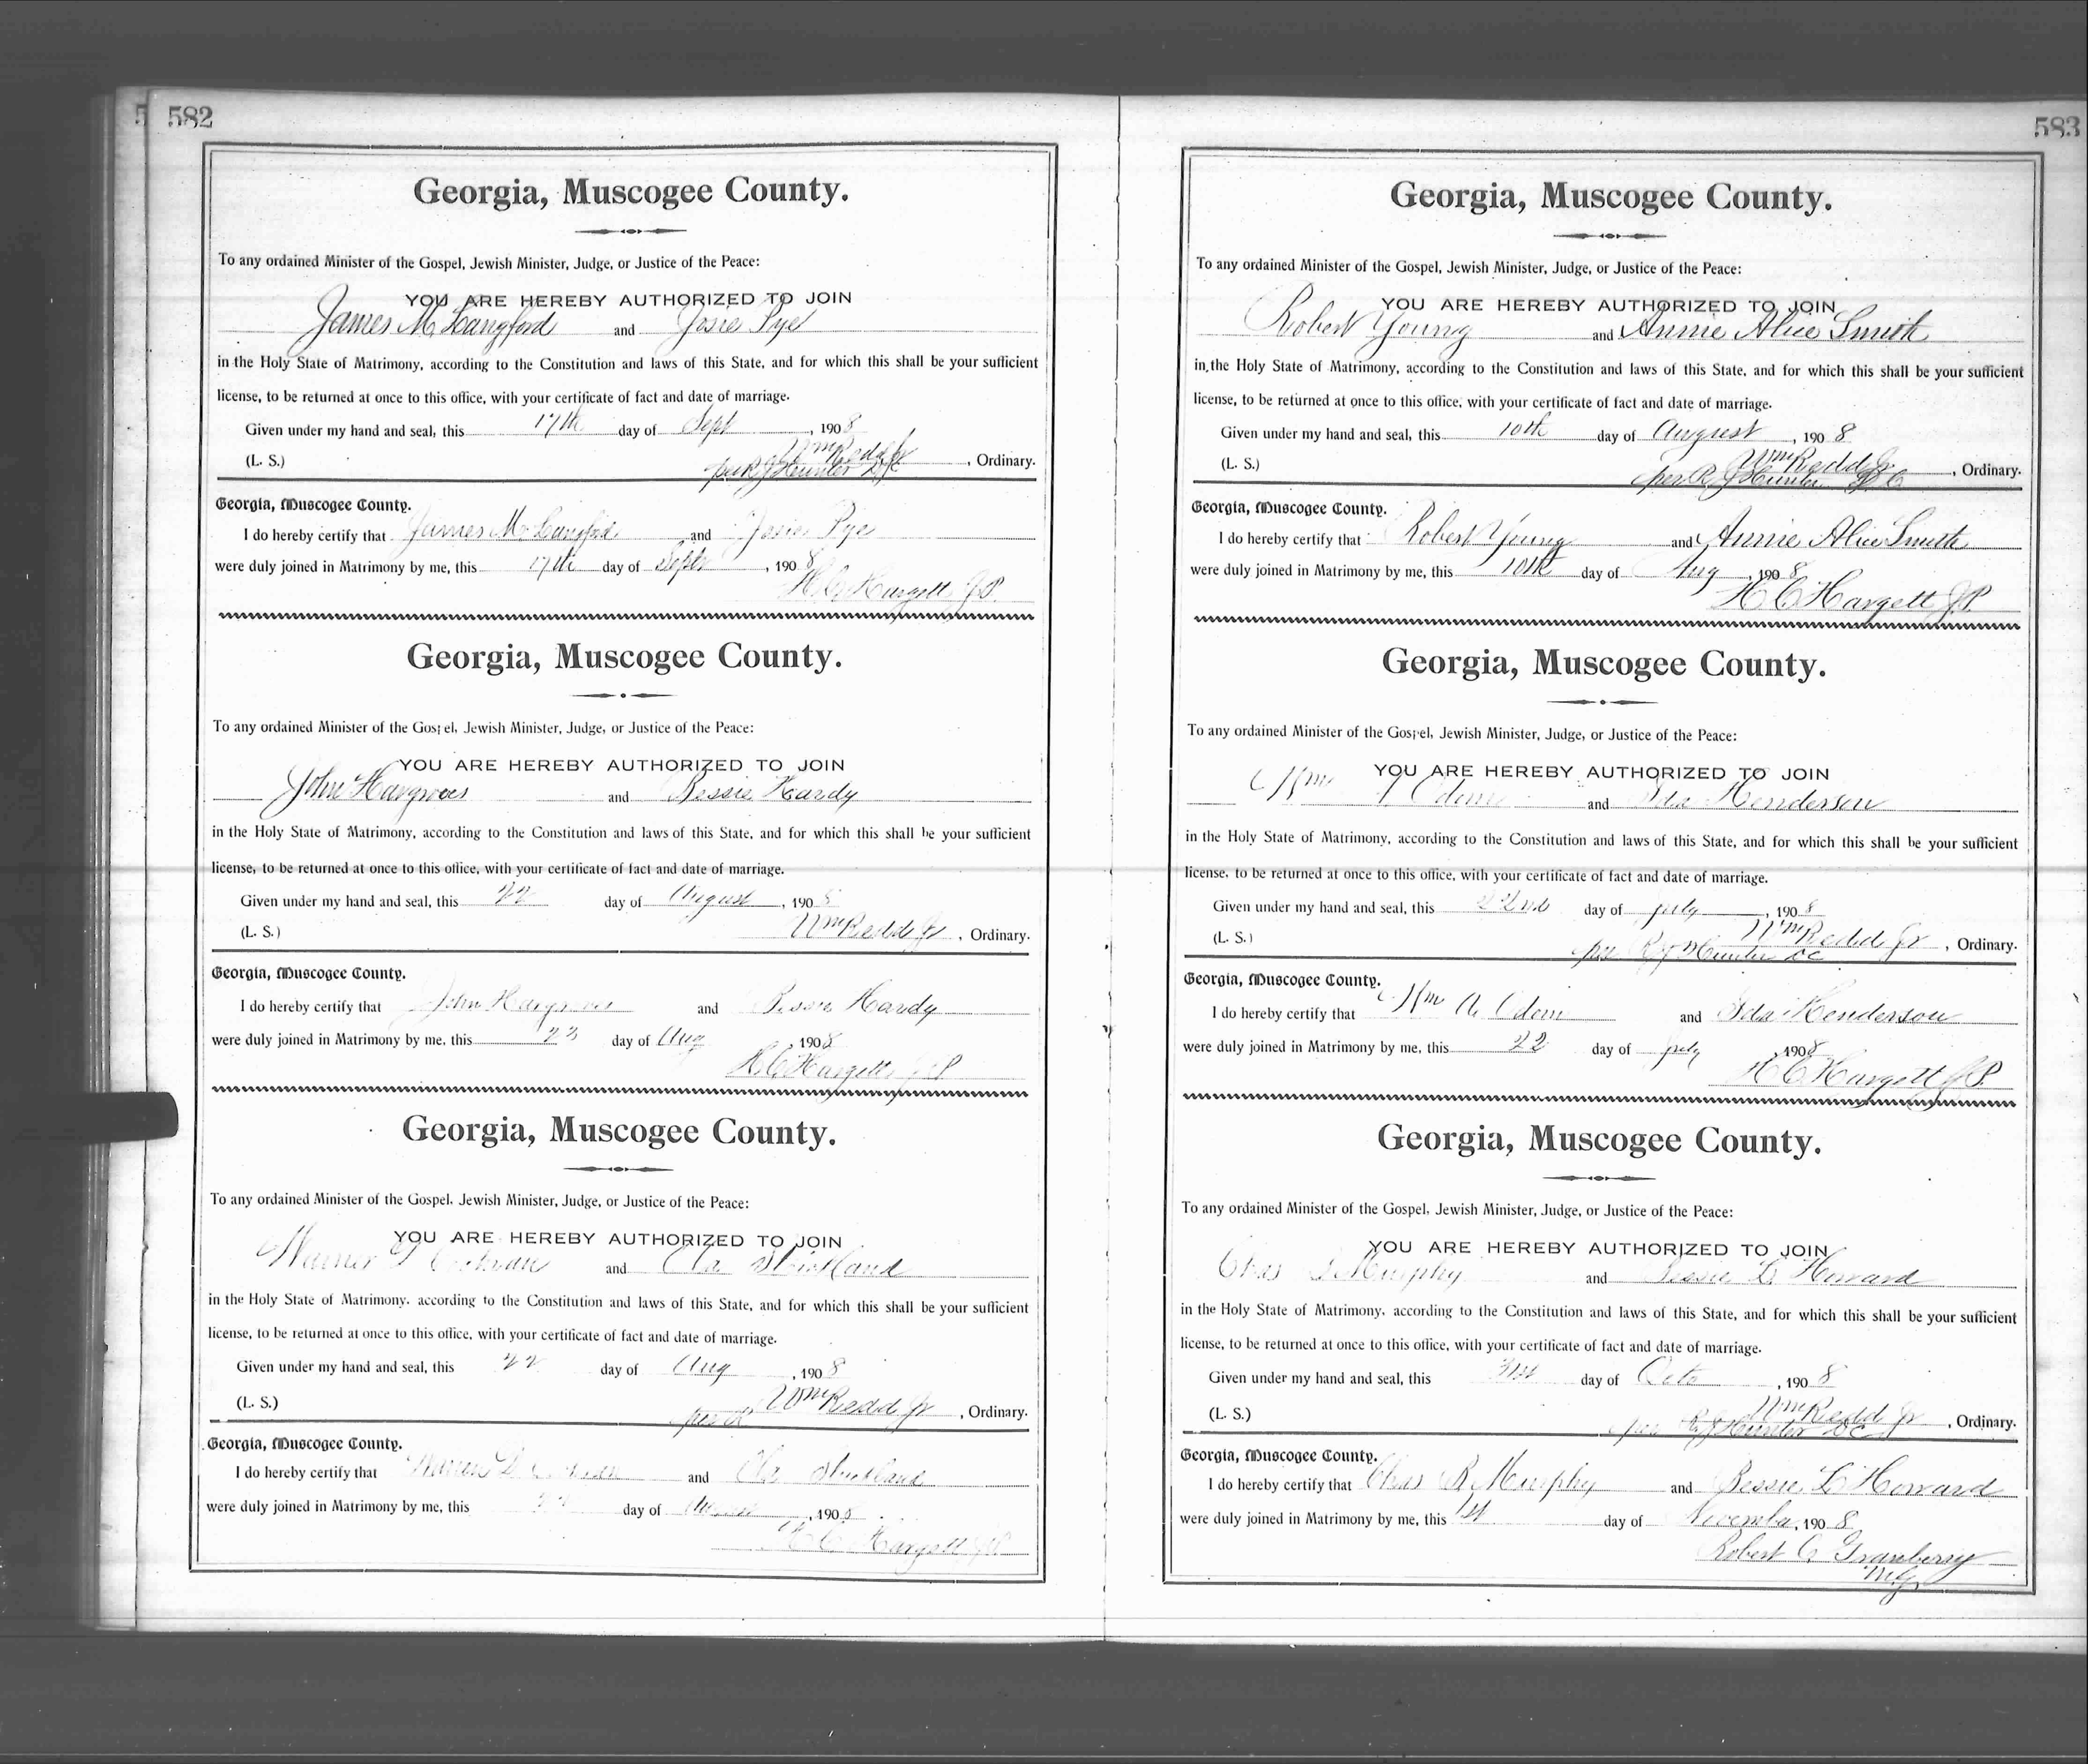 582
Georgia, Muscogee County.
To any ordained Minister of the Gospel, Jewish Minister, Judge, or Justice of the Peace:
YOU ARE HEREBY AUTHORIZED TO JOIN
James M Langford and Josie Pye
in the Holy State of Matrimony, according to the Constitution and laws of this State, and for which this shall be your sufficient
license, to be returned at once to this office, with your certificate of fact and date of marriage.
Given under my hand and seal, this 17th day of Sept, 1908
Wm Redd Jr
(L. S.) per R J Hunter D C, Ordinary.
Georgia, Muscogee County.
I do hereby certify that James M Langford and Josie Pye
were duly joined in Matrimony by me, this 17th day of Sept, 1908
H C Hargett J.P.
Georgia, Muscogee County.
To any ordained Minister of the Gospel, Jewish Minister, Judge, or Justice of the Peace:
YOU ARE HEREBY AUTHORIZED TO JOIN
John Hargroves and Bessie Hardy
in the Holy State of Matrimony, according to the Constitution and laws of this State, and for which this shall be your sufficient
license, to be returned at once to this office, with your certificate of fact and date of marriage.
Given under my hand and seal, this 22 day of August, 1908
(L. S.) Wm Redd Jr, Ordinary.
Georgia, Muscogee County.
I do hereby certify that John Hargroves and Hardy
were duly joined in Matrimony by me, this 23 day of Aug 1908
H C Hargett J P
Georgia, Muscogee County.
To any ordained Minister of the Gospel, Jewish Minister, Judge, or Justice of the Peace:
YOU ARE HEREBY AUTHORIZED TO JOIN
Warner D and Ola Strickland
in the Holy State of Matrimony, according to the Constitution and laws of this State, and for which this shall be your sufficient
license, to be returned at once to this office, with your certificate of fact and date of marriage.
Given under my hand and seal, this 22 day of Aug, 1908
(L. S.) Wm Redd Jr, Ordinary.
per
Georgia, Muscogee County.
I do hereby certify that D and Ola Strickland
were duly joined in Matrimony by me, this 22 day of August, 1908
H C Hargett J P
583
Georgia, Muscogee County.
To any ordained Minister of the Gospel, Jewish Minister, Judge, or Justice of the Peace:
YOU ARE HEREBY AUTHORIZED TO JOIN
Robert Young and Annie Alice Smith
in the Holy State of Matrimony, according to the Constitution and laws of this State, and for which this shall be your sufficient
license, to be returned at once to this office, with your certificate of fact and date of marriage.
Given under my hand and seal, this 10th day of August, 1908
Wm Redd Jr
(L. S.) per R J Hunter D C, Ordinary.
Georgia, Muscogee County.
I do hereby certify that Robert Young and Annie Alice Smith
were duly joined in Matrimony by me, this 10th day of Aug, 1908
H C Hargett J.P.
Georgia, Muscogee County.
To any ordained Minister of the Gospel, Jewish Minister, Judge, or Justice of the Peace:
YOU ARE HEREBY AUTHORIZED TO JOIN
Wm Odom and Ida Henderson
in the Holy State of Matrimony, according to the Constitution and laws of this State, and for which this shall be your sufficient
license, to be returned at once to this office, with your certificate of fact and date of marriage.
Given under my hand and seal, this 22nd day of July, 1908
(L. S.) Wm Redd Jr, Ordinary.
per R J Hunter D C
Georgia, Muscogee County.
I do hereby certify that Wm A Odom and Ida Henderson
were duly joined in Matrimony by me, this 22 day of July, 1908
H C Hargett J.P.
Georgia, Muscogee County.
To any ordained Minister of the Gospel, Jewish Minister, Judge, or Justice of the Peace:
YOU ARE HEREBY AUTHORIZED TO JOIN
Chas Murphy and Bessie L Howard
in the Holy State of Matrimony, according to the Constitution and laws of this State, and for which this shall be your sufficient
license, to be returned at once to this office, with your certificate of fact and date of marriage.
Given under my hand and seal, this 31st day of Octo, 1908
Wm Redd Jr
(L. S.) per R J Hunter D C, Ordinary.
Georgia, Muscogee County.
I do hereby certify that Chas B Murphy and Bessie L Howard
were duly joined in Matrimony by me, this 1st day of November, 1908
Robert C Granberry
M.G.